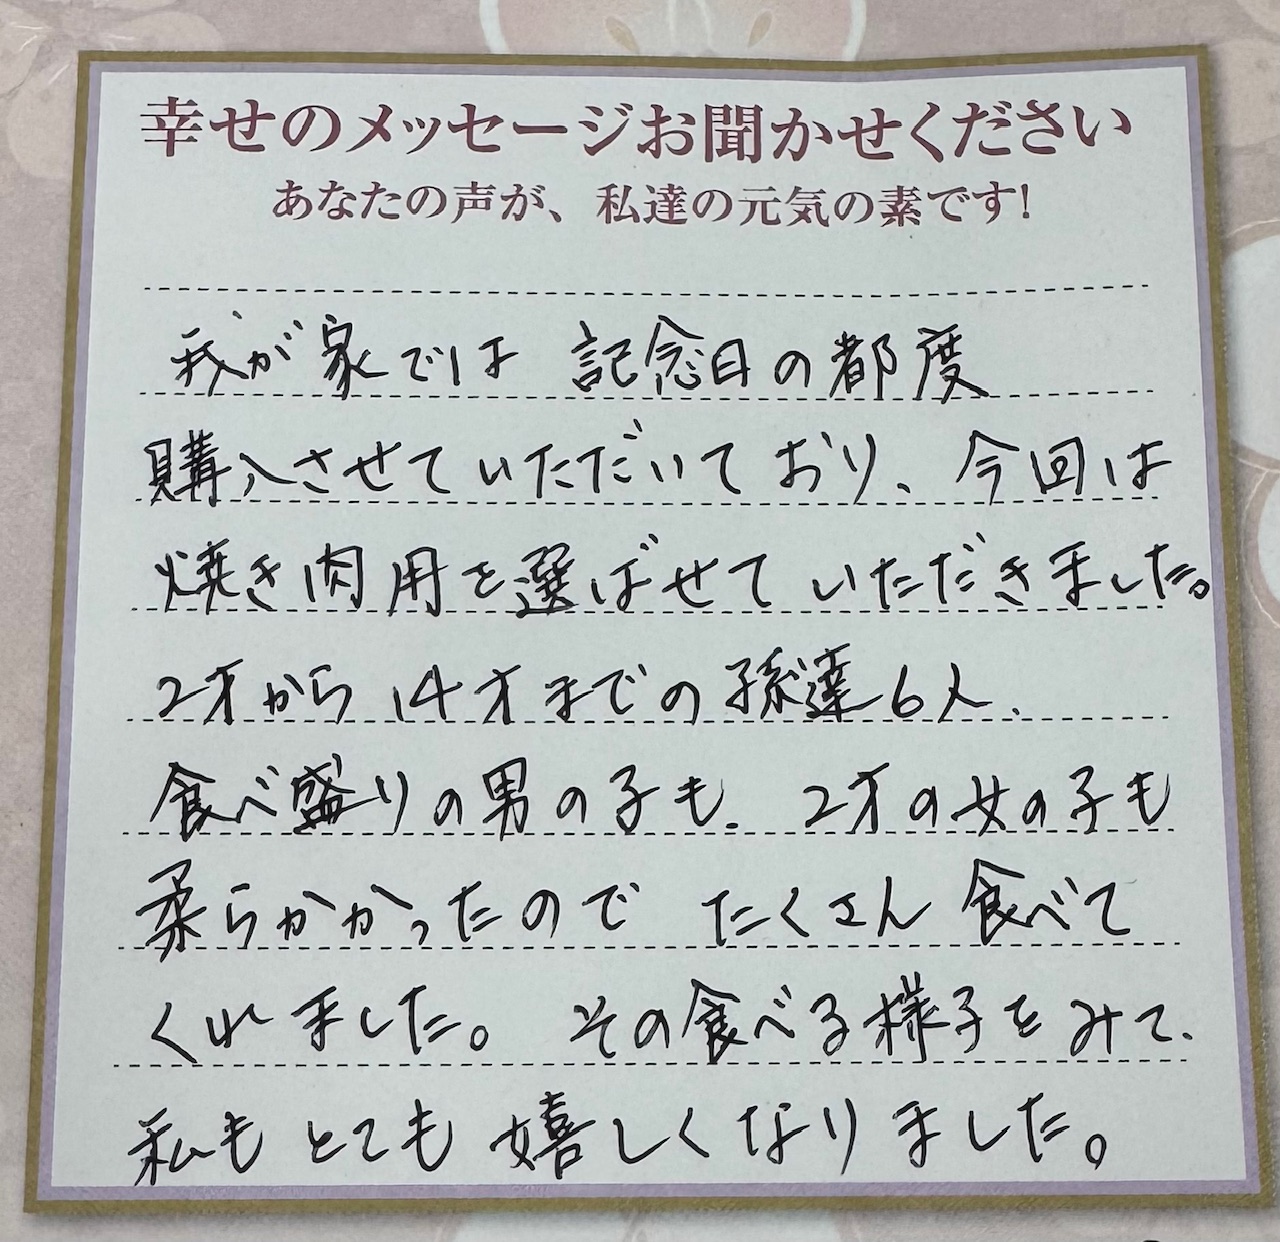 幸せのメッセージお聞かせください
あなたの声が、私達の元気の素です!
我が家では 記念日の都度
購入させていただいており、今回は
焼き肉用を選ばせていただきました。
2才から14才までの孫達6人、
食べ盛りの男の子も、2才の女の子も
柔らかかったので たくさん食べて
くれました。 その食べる様子をみて、
私もとても嬉しくなりました。